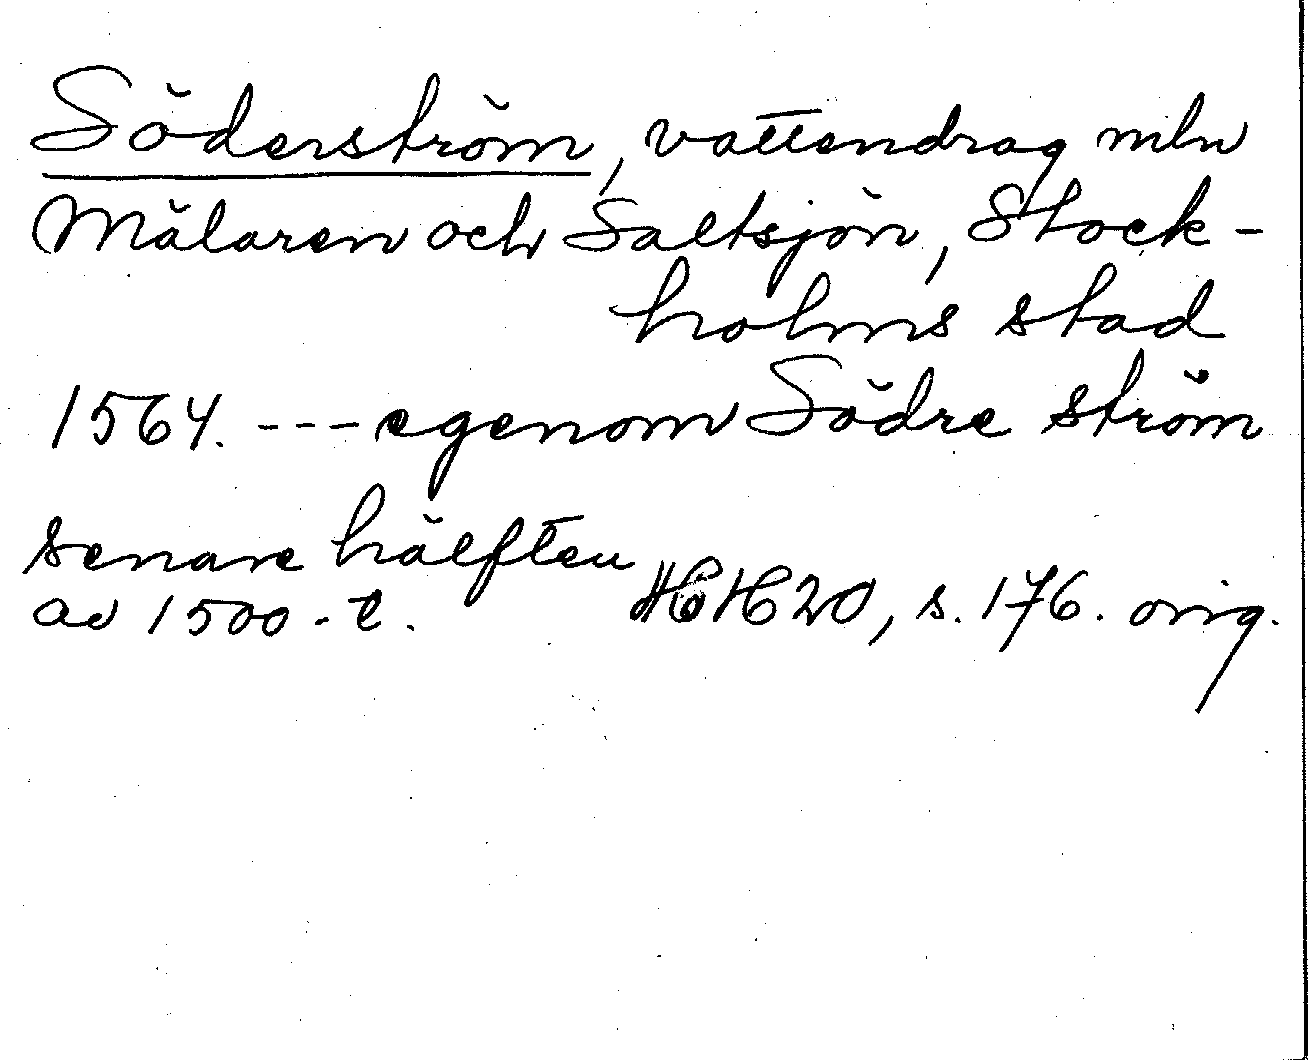 Söderström, vattendrag mln
Mälaren och Saltsjön, Stock-
holms stad
1564. --- egenom Södre ström
senare hälften
av 1500-t. HH 20, s. 176. orig.